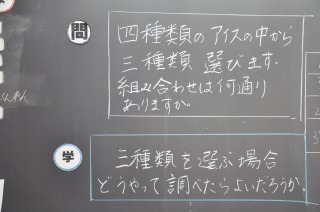 問
四種類のアイスの中から
三種類選びます。
組み合わせは何通り
ありますか。
学
三種類を選ぶ場合
どうやって調べたらよいだろうか。